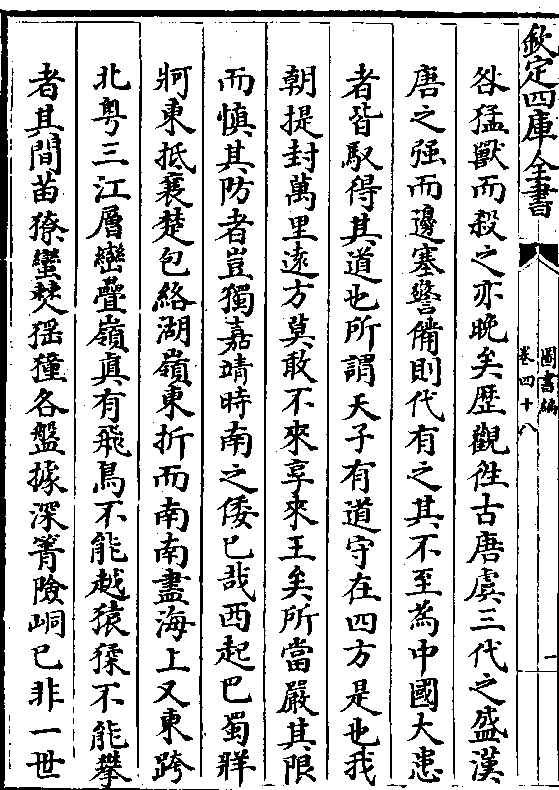 欽定四庫全書
圖書編
卷四十八
一
咎猛獸而殺之亦晚矣歴觀徃古唐虞三代之盛漢
唐之强而邊塞警備則代有之其不至為中國大患
者皆馭得其道也所謂天子有道守在四方是也我
朝提封萬里逺方莫敢不來享來王矣所當嚴其限
而慎其防者豈獨嘉靖時南之倭已哉西起巴蜀牂
牁東抵襄楚包絡湖嶺東折而南南盡海上又東跨
北粤三江層巒疊嶺真有飛鳥不能越猿猱不能攀
者其間苗獠蠻僰猺獞各盤據深箐險峒已非一世